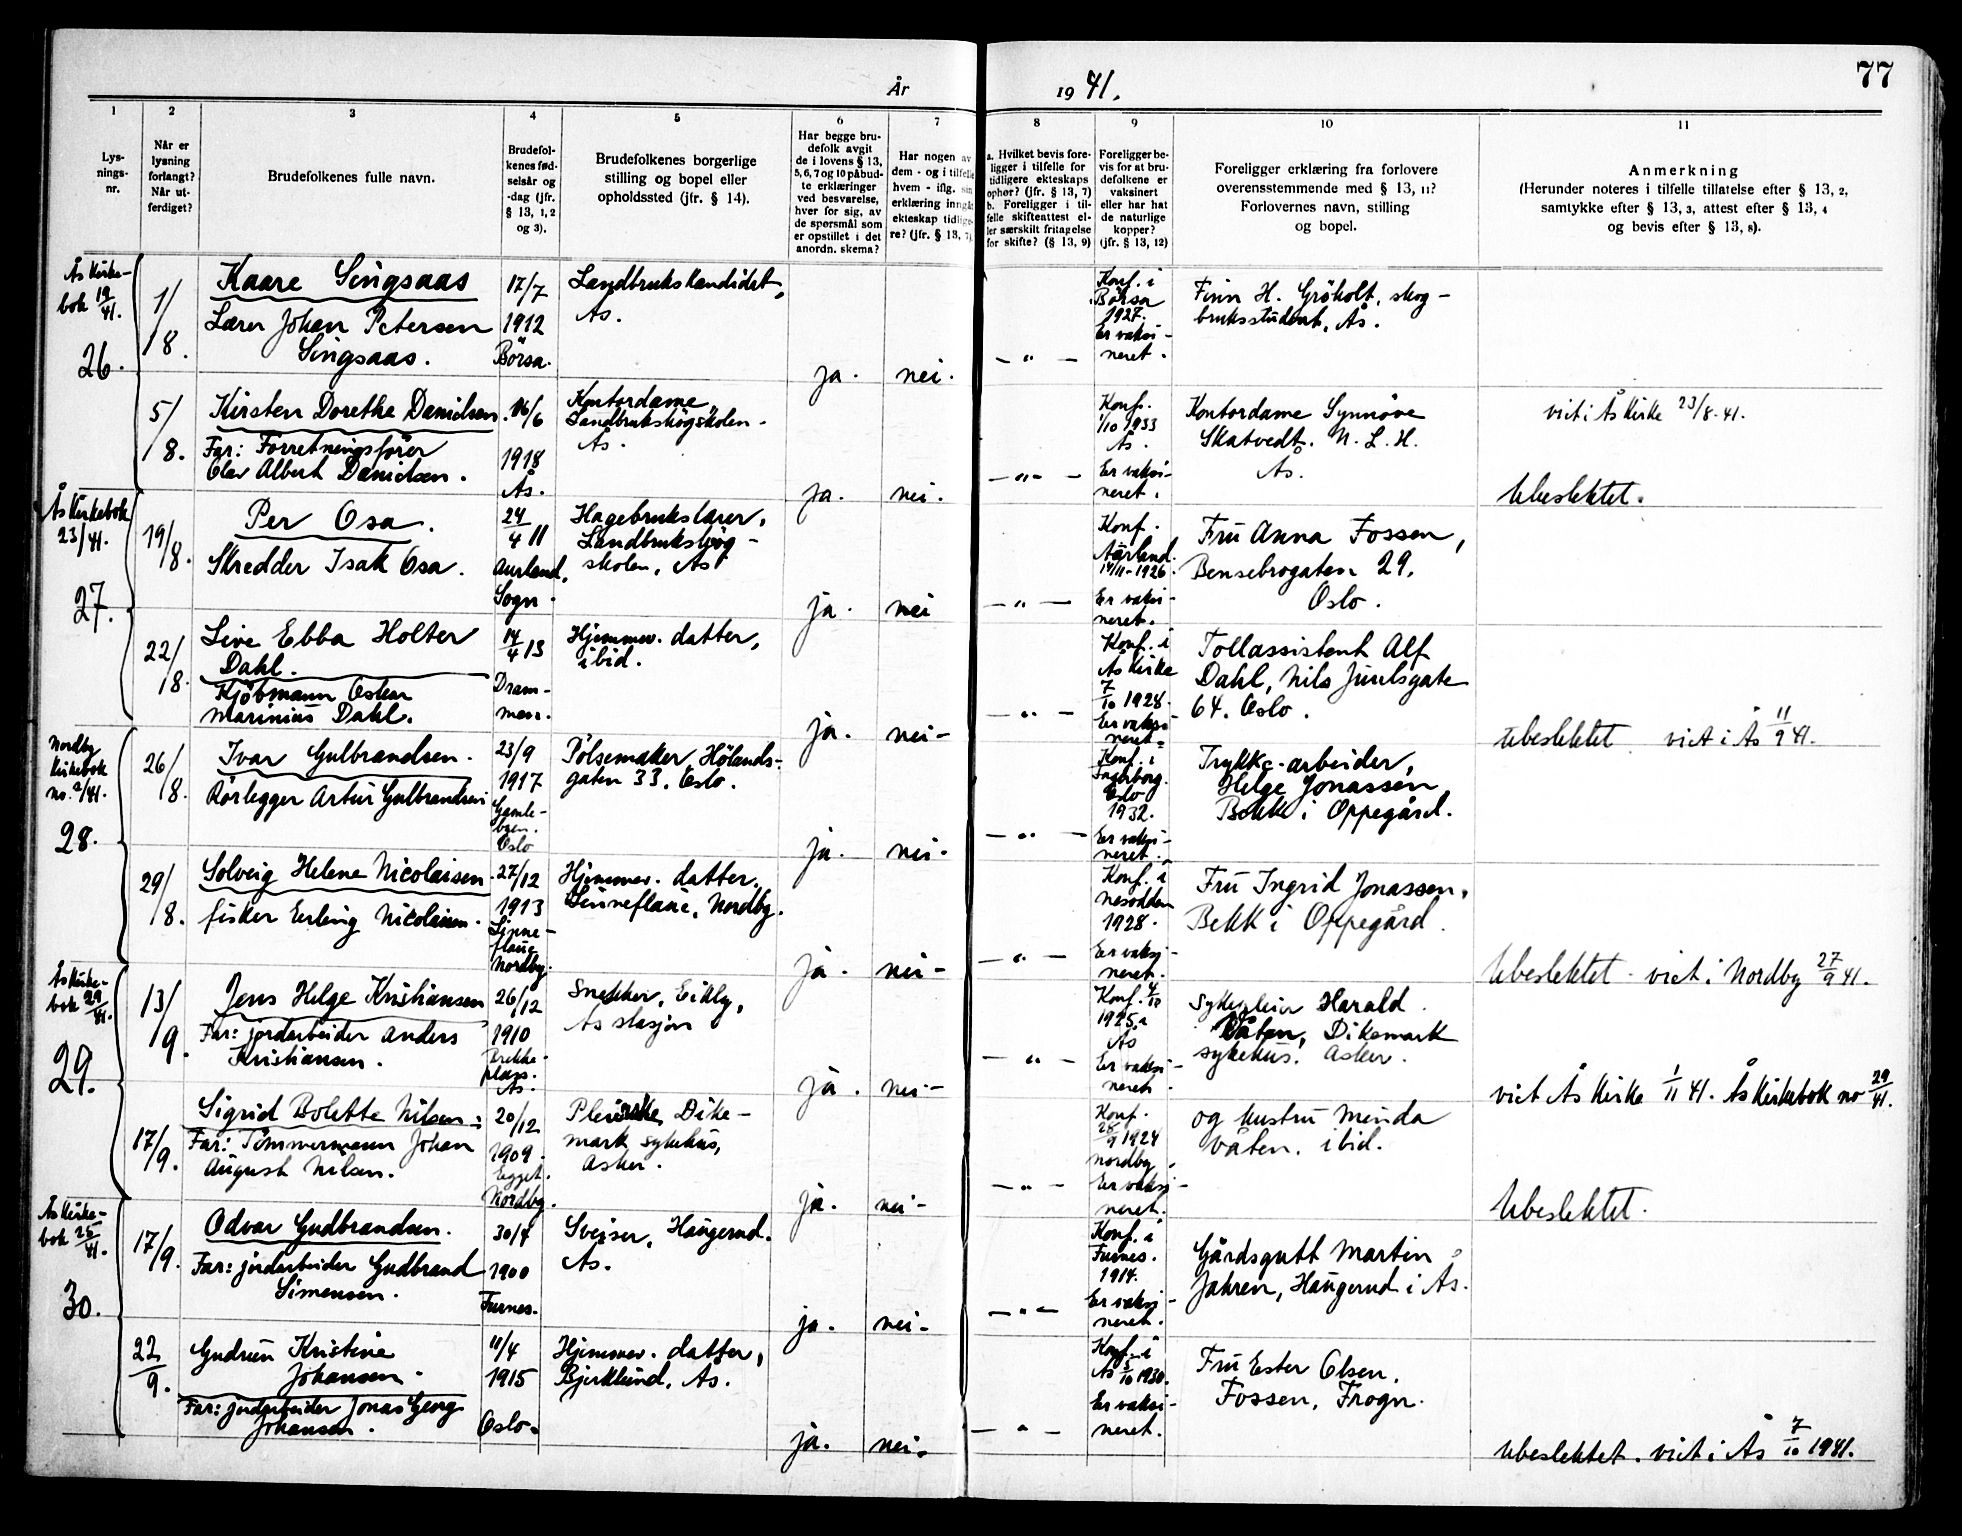 År 1941.
77
1
2
3
4
5
6
7
8
9
10
11
Lys-
nings-
nr.
Når er
lysning
forlangt?
Når ut-
ferdiget?
Brudefolkenes fulle navn.
Brudefol-
kenes fød-
selsår og
-dag (jfr.
§ 13, 1, 2
og 3).
Brudefolkenes borgerlige
stilling og bopel eller
opholdssted (jfr. § 14).
Har begge bru-
defolk avgit
de i lovens § 13,
5, 6, 7 og 10 påbud-
te erklæringer
ved besvarelse,
hver for sig, av
de spørsmål som
er opstillet i det
anordn. skema?
Har nogen av
dem - og i tilfelle
hvem - iflg. sin
erklæring inngå
ekteskap tidlige-
re? (jfr. § 13, 7)
a. Hvilket bevis fore-
ligger i tilfelle for
tidligere ekteskaps
ophør? (jfr. § 13, 7)
b. Foreligger i til-
felle skifteattest el-
ler særskilt fritagelse
for skifte? (§ 13, 9)
Foreligger be-
vis for at bru-
defolkene er
vaksinert
eller har hat
de naturlige
kopper?
(jfr. § 13, 12)
Foreligger erklæring fra forlovere
overensstemmende med § 13, 11?
Forlovernes navn, stilling
og bopel.
Anmerkning
(Herunder noteres i tilfelle tillatelse efter § 13, 2,
samtykke efter § 13, 3, attest efter § 13, 4
og bevis efter § 13, 8).
Ås Kirke-
bok 19/41.
26.
1/8.
Kaare Singsaas
Lærer Johan Petersen
Singsaas.
17/7
1912
Börsa.
Landbrukskandidat,
Ås.
ja.
nei.
— " —
Konf. i
Börsa
1927.
Er vaksi-
neret.
Finn H. Gröholt, skog-
bruksstudent, Ås.
5/8.
Kirsten Dorethe Danielsen.
Far: Forretningsförer
Olav Albert Danielsen.
16/6
1918
Ås.
Kontordame,
Landbrukshögskolen.
Ås.
ja.
nei.
— " —
Konf.
1/10 1933
Ås.
Er vaksi-
neret.
Kontordame Synnöve
Skatvedt. N. L. H.
Ås.
viet i Ås Kirke 23/8-41.
Ubeslektet.
Ås Kirkebok
23/41.
27.
19/8.
Per Osa.
Skredder Isak Osa.
24/4 11
Aurland,
Sogn.
Hagebrukslærer,
Landbrukshög-
skolen, Ås
ja.
nei
— " —
Konf.
Aurland.
14/11-1926.
Er vaksi-
neret.
Fru Anna Fossen,
Bensebrogaten 29,
Oslo.
22/8.
Live Ebba Holter
Dahl.
Kjöbmann Oskar
Marinius Dahl.
14/4 13
Dram-
men.
Hjemmev. datter,
ibid.
ja.
nei-
— " —
Konf. i
Ås Kirke
7/10 1928.
Er vaksi-
neret.
Tollassistent Alf
Dahl, Nils Juulsgate
64. Oslo.
Ubeslektet. viet i Ås 11/9 41.
Nordby
Kirkebok
no. 2/41.
28.
26/8.
Ivar Gulbrandsen.
Rörlegger Artur Gulbrandsen
23/9
1917
Gamle-
byen.
Oslo
Pölsemaker, Hölands-
gaten 33, Oslo.
ja.
nei.
— " —
Konf. i
Fagerborg.
Oslo
1932.
Er vaksi-
neret.
Trykke-arbeider,
Helge Jonassen,
Bekk i Oppegård.
29/8.
Solveig Helene Nicolaisen.
fisker Erling Nicolaisen.
27/12
1913
Linne-
flaue
Nordby.
Hjemmev. datter,
Linneflaue, Nordby.
ja.
nei-
— " —
Konf. i
Nesodden
1928.
Er vaksi-
neret.
Fru Ingrid Jonassen,
Bekk i Oppegård.
Ubeslektet - viet i Nordby 27/9 41.
Ås Kirke-
bok 29/41.
29.
13/9.
Jens Helge Kristiansen
Far: jordarbeider Anders
Kristiansen.
26/12
1910
Brekke-
plass.
Ås.
Snekker, Eikly,
Ås stasjon
ja.
nei-
— " —
Konf. 4/10
1925
Ås
Er vaksi-
neret.
Sykepleier Harald
Våten, Dikemark
sykehus. Asker.
viet Ås Kirke 1/11 41. Ås Kirkebok no 29/41.
17/9.
Sigrid Bolette Nilsen:
Far: Tömmermann Johan
August Nilsen.
20/12
1909.
Nordby.
Pleierske Dike-
mark sykehus,
Asker.
ja.
nei-
— " —
Konf.
28/9 1924
Nordby.
Er vaksi-
neret.
og hustru Minda
Våten. ibid.
Ubeslektet.
Ås Kirke-
bok 25/41.
30.
17/9.
Odvar Gudbrandsen.
Far: jordarbeider Gudbrand
Simensen.
30/4
1900
Furnes.
Sveiser, Haugerud.
Ås.
ja.
nei-
— " —
Konf. i
Furnes.
1914.
Er vaksi-
neret.
Gårdsgutt Martin
Jahren, Haugerud i Ås.
22/9.
Gudrun Kristine
Johansen.
Far: jordarbeider Jonas Georg
Johansen.
11/4
1915
Oslo.
Hjemmev. datter,
Bjerklund, Ås.
ja.
nei.
— " —
Konf. i
Ås 5/10 1930.
Er vaksi-
neret.
Fru Ester Olsen,
Fossen, Frogn.
Ubeslektet. viet i Ås 7/10 1941.